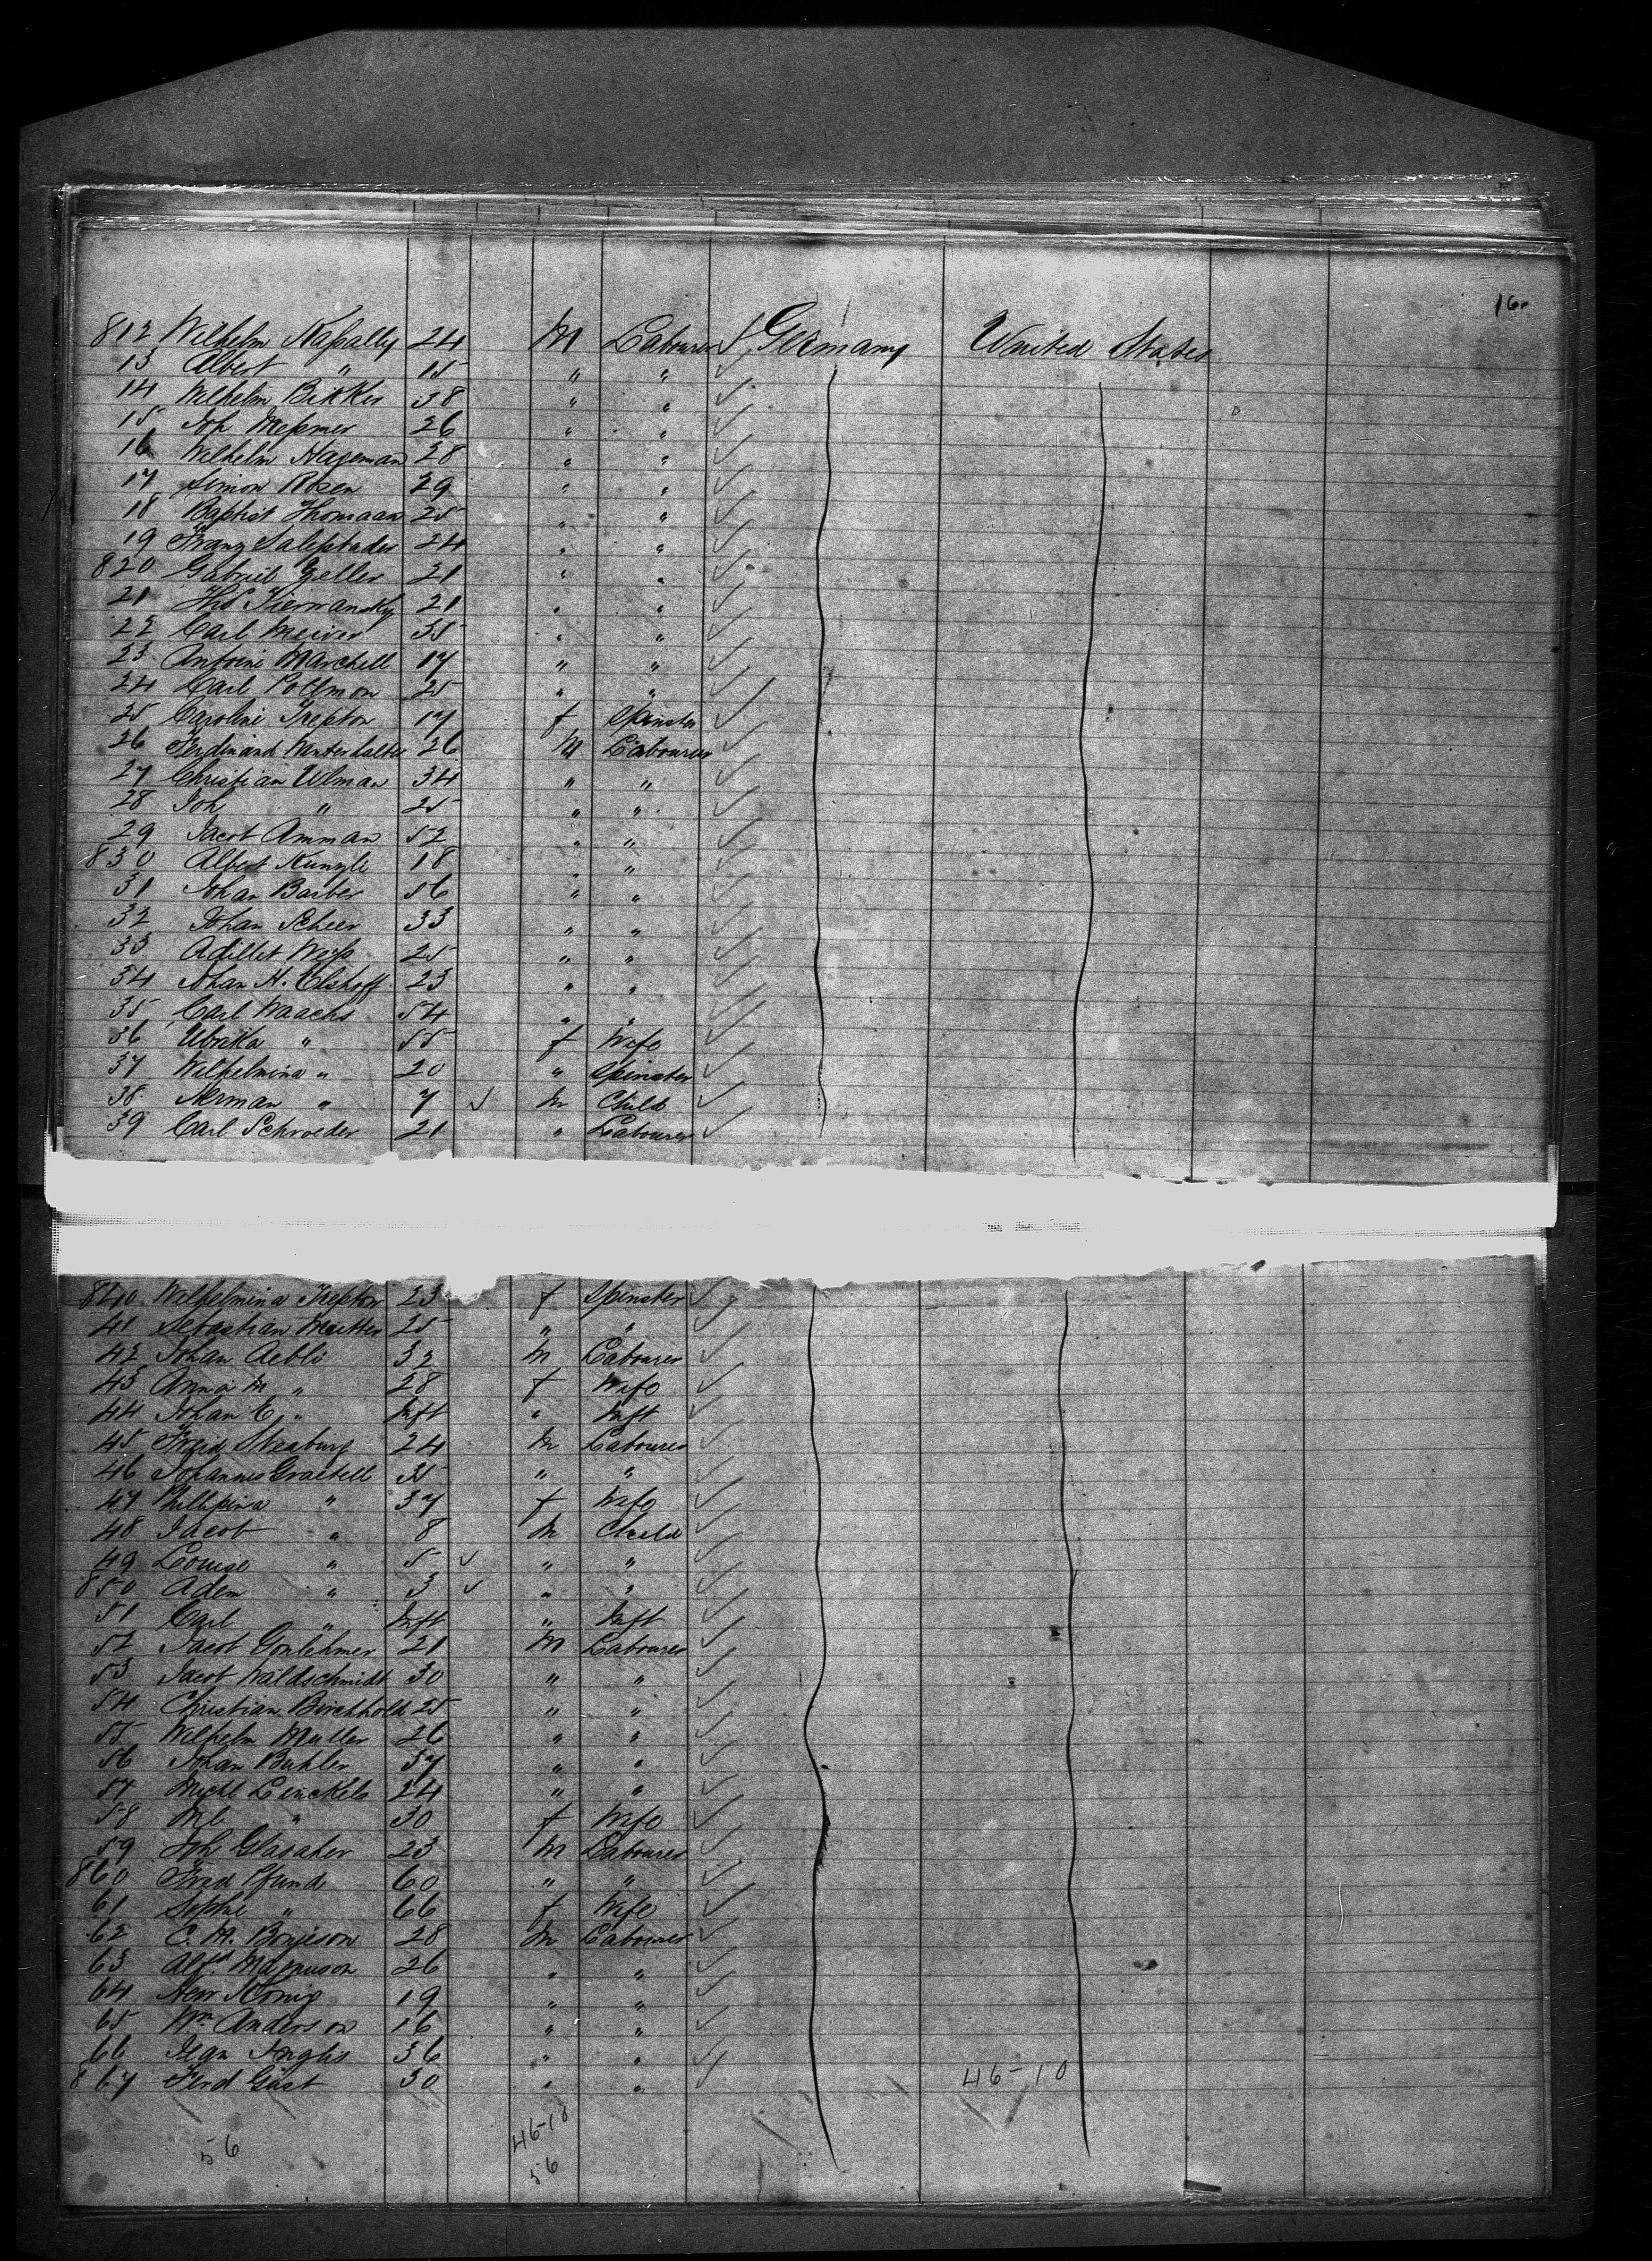 16.
812 Wilhelm Kassally 24 M Labourer Germany United States
13 Albert " 15 " "
14 Wilhelm Bikker 38 " "
15 Joh Messmer 26 " "
16 Wilhelm Hageman 28 " "
17 Simon Rosen 29 " "
18 Baptist Thomaan 25 " "
19 Franz 24 " "
820 Gabriel Zeller 21 " "
21 21 " "
22 Carl Meiver 35 " "
23 Antoine Marchell 17 " "
24 Carl Pollmon 25 " "
25 Caroline Trepton 17 f Spinster
26 Ferdinand Winterhalter 26 M Labourer
27 Christian Ulman 34 " "
28 Joh " 25 " "
29 Jacob Amman 52 " "
830 Albert Kunzle 18 " "
31 Johan Barber 56 " "
32 Johan Scheer 33 " "
33 Weiss 25 " "
34 Johan H. Elshoff 23 " "
35 Carl Waachs 54 " "
36 Ulrika " 55 f Wife
37 Wilhelmina " 20 " Spinster
38 Herman " 7 M Child
39 Carl Schroeder 21 " Labourer
840 Wilhelmina Trepton 23 f Spinster
41 Sebastian 25 " "
42 Johan Aebli 32 M Labourer
43 Anna M " 28 f Wife
44 Johan E " Inft " Inft
45 24 M Labourer
46 Johannes Graebell 35 " "
47 Phillipina " 37 f Wife
48 Jacob " 8 M Child
49 Louise " 5 " "
850 Adem " 3 " "
51 Carl " Inft " Inft
52 Jacob 21 M Labourer
53 Jacob Waldschmidt 30 " "
54 Christian Birchhold 25 " "
55 Wilhelm Muller 26 " "
56 Johan Buhler 37 " "
57 Michl Linckels 24 " "
58 " 30 f Wife
59 Joh Glasaher 23 M Labourer
860 Fred Pfund 60 " "
61 Sophie " 66 f Wife
62 C. M. Borjeson 28 M Labourer
63 Alfd Magnuson 26 " "
64 Henr König 19 " "
65 Wm Anderson 16 " "
66 Jean Inglis 36 " "
867 Ferd Gast 30 " "
46-10
46-10
56
56